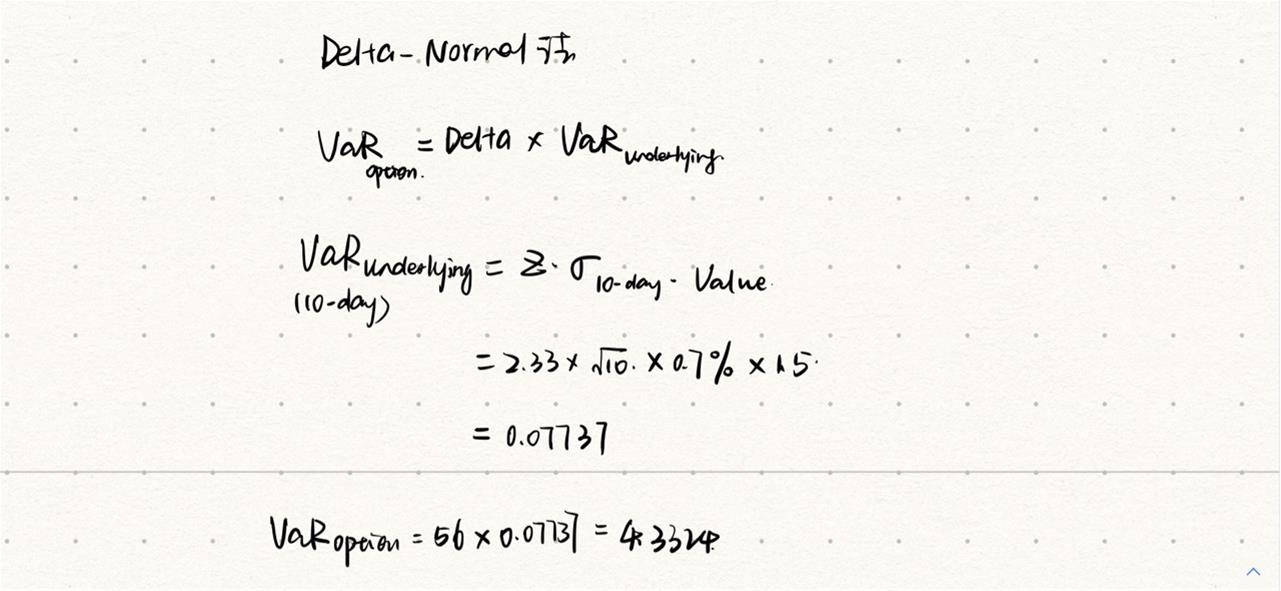 Delta-Normal 法
VaR option. = Delta × VaR underlying.
VaR underlying = Z · σ 10-day · Value.
(10-day)
= 2.33 × √10. × 0.7% × 1.5.
= 0.07737
VaR option = 56 × 0.07737 = 4.3324